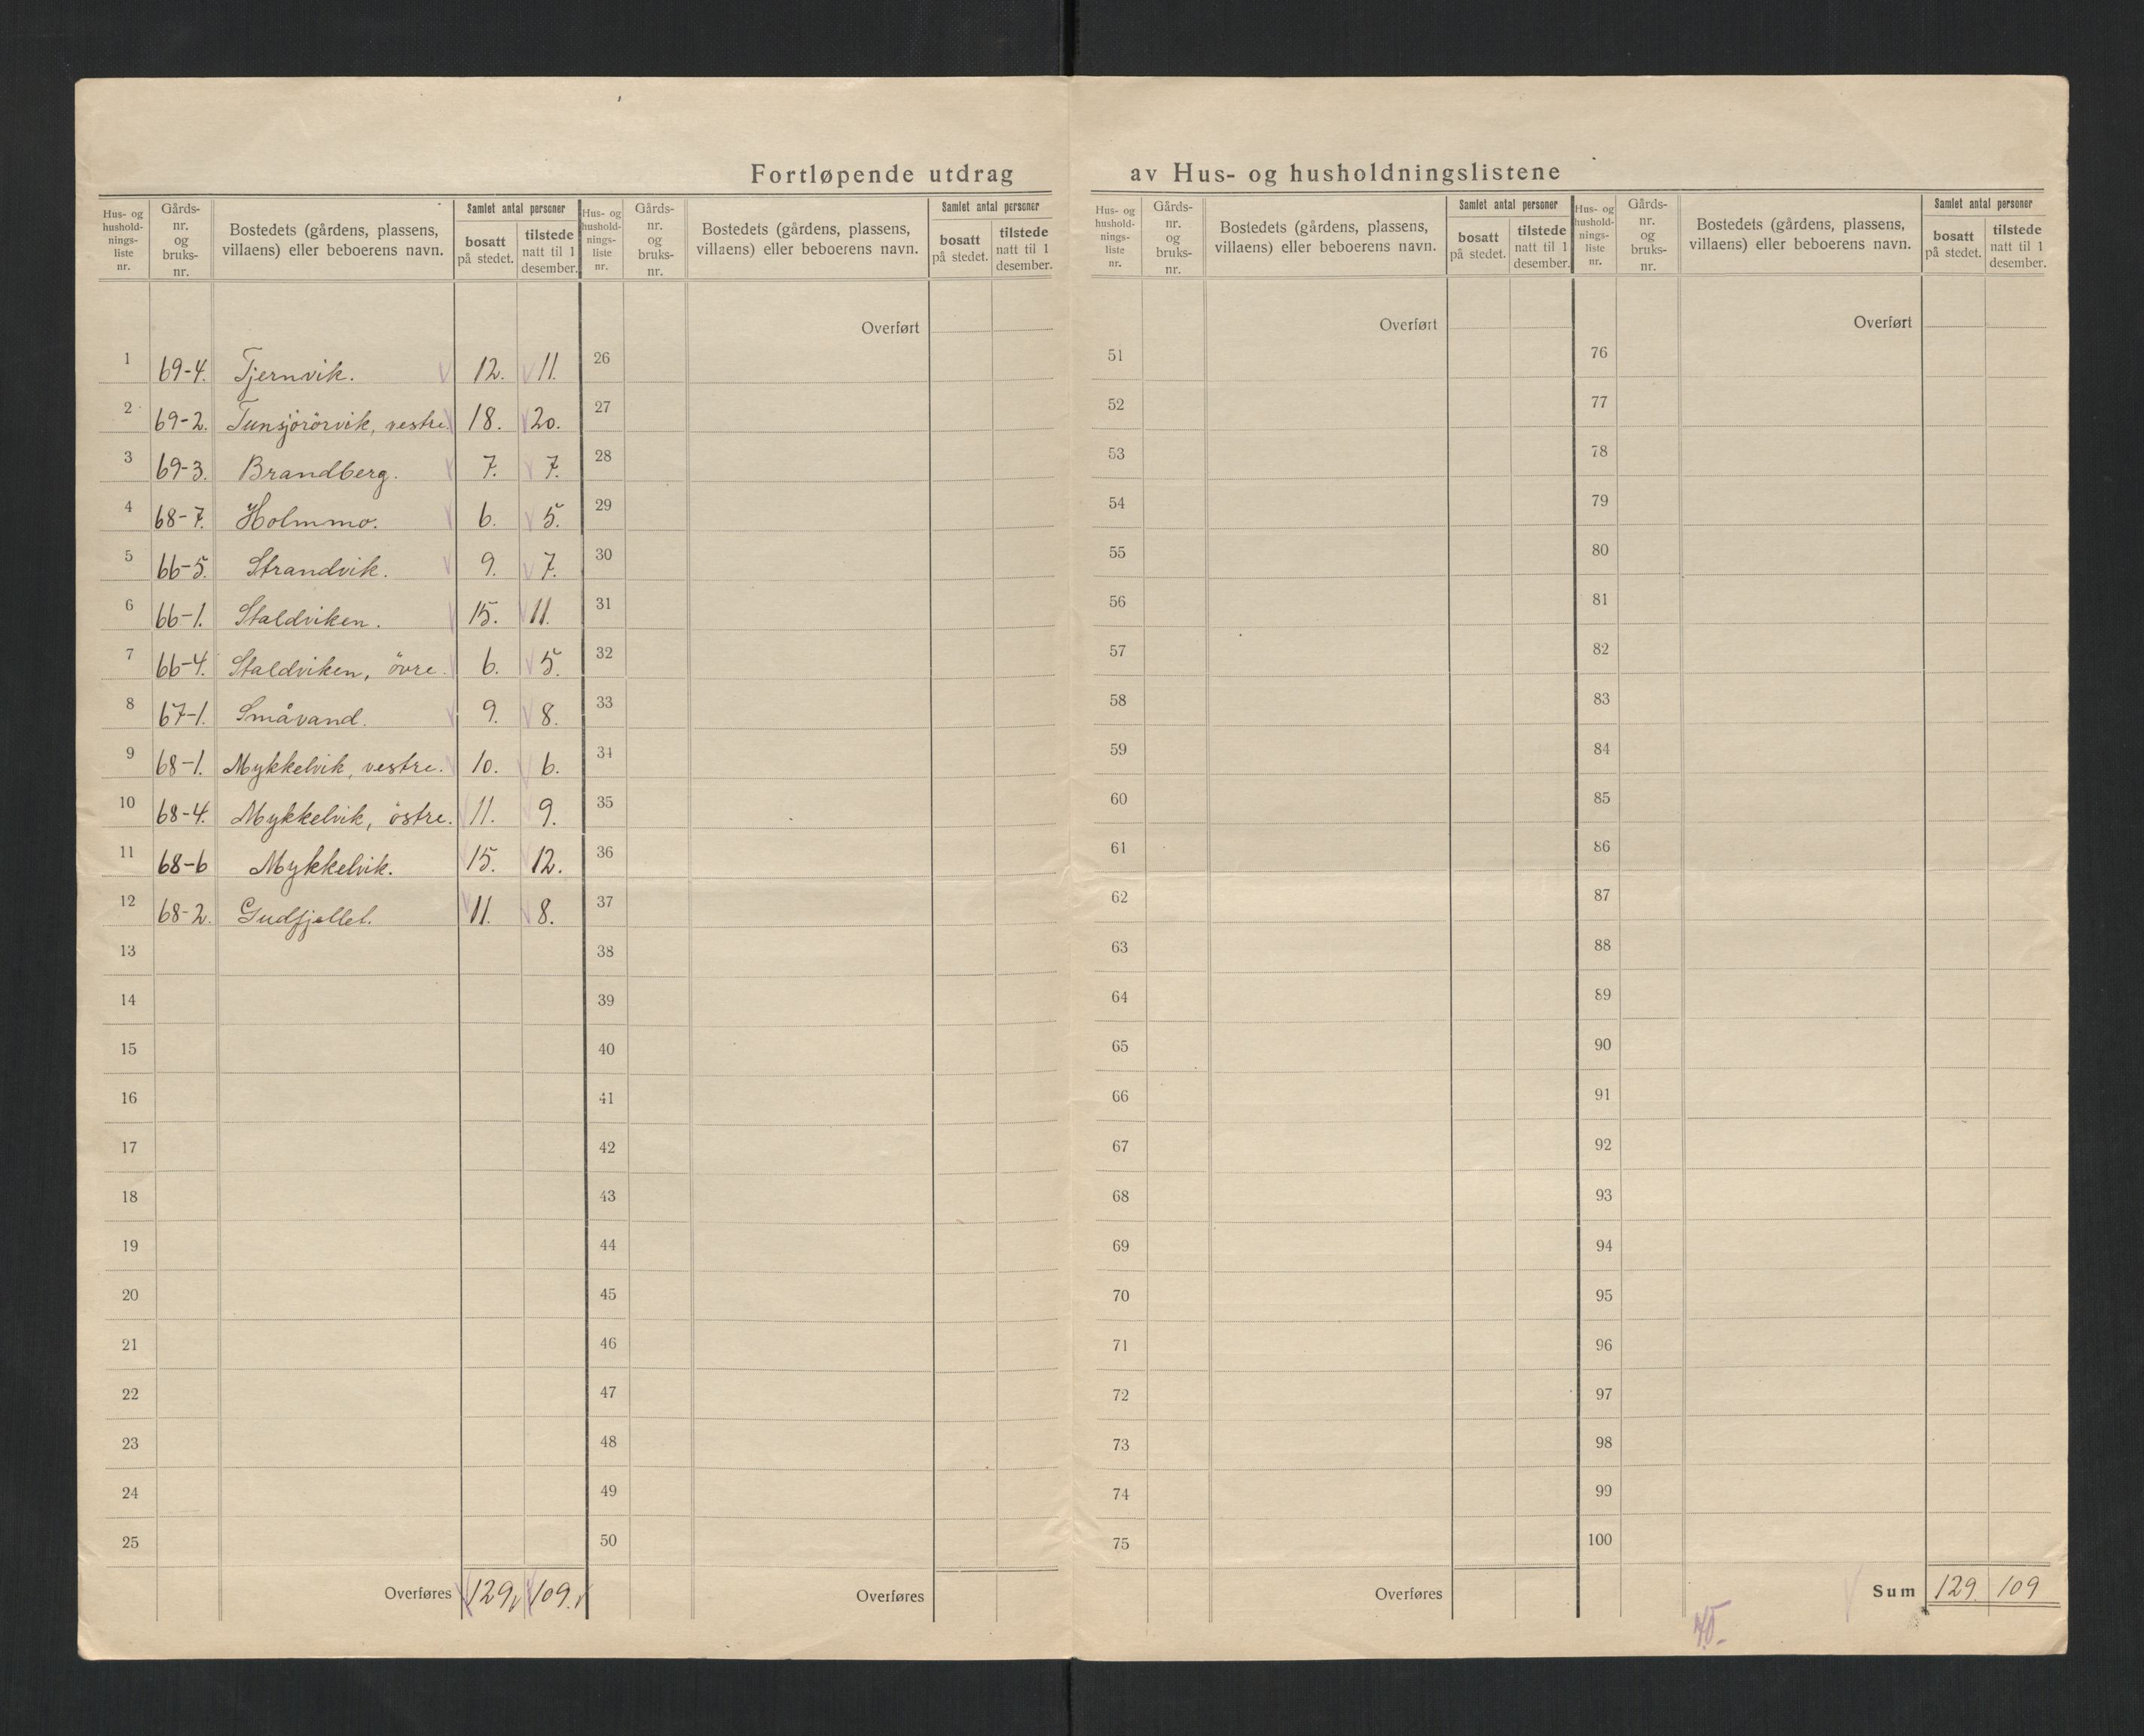 Fortløpende utdrag av Hus- og husholdningslistene
Hus- og hushold- nings- liste nr. | Gårds- nr. og bruks- nr. | Bostedets (gårdens, plassens, villaens) eller beboerens navn. | Samlet antal personer | bosatt på stedet. | tilstede natt til 1 desember.
Hus- og hushold- nings- liste nr. | Gårds- nr. og bruks- nr. | Bostedets (gårdens, plassens, villaens) eller beboerens navn. | Samlet antal personer | bosatt på stedet. | tilstede natt til 1 desember.
Hus- og hushold- nings- liste nr. | Gårds- nr. og bruks- nr. | Bostedets (gårdens, plassens, villaens) eller beboerens navn. | Samlet antal personer | bosatt på stedet. | tilstede natt til 1 desember.
Hus- og hushold- nings- liste nr. | Gårds- nr. og bruks- nr. | Bostedets (gårdens, plassens, villaens) eller beboerens navn. | Samlet antal personer | bosatt på stedet. | tilstede natt til 1 desember.
Overført Overført Overført
1 69-4. Tjernvik. 12. 11. 26 51 76
2 69-2. Tunsjörörvik, vestre. 18. 20. 27 52 77
3 69-3. Brandberg. 7. 7. 28 53 78
4 68-7. Holmmo. 6. 5. 29 54 79
5 66-5. Strandvik. 9. 7. 30 55 80
6 66-1. Staldviken. 15. 11. 31 56 81
7 66-4. Staldviken, övre. 6. 5. 32 57 82
8 67-1. Småvand. 9. 8. 33 58 83
9 68-1. Mykkelvik, vestre. 10. 6. 34 59 84
10 68-4. Mykkelvik, östre. 11. 9. 35 60 85
11 68-6 Mykkelvik. 15. 12. 36 61 86
12 68-2. Gudfjellet. 11. 8. 37 62 87
13 38 63 88
14 39 64 89
15 40 65 90
16 41 66 91
17 42 67 92
18 43 68 93
19 44 69 94
20 45 70 95
21 46 71 96
22 47 72 97
23 48 73 98
24 49 74 99
25 50 75 100
Overføres 129 109. Overføres Overføres Sum 129 109